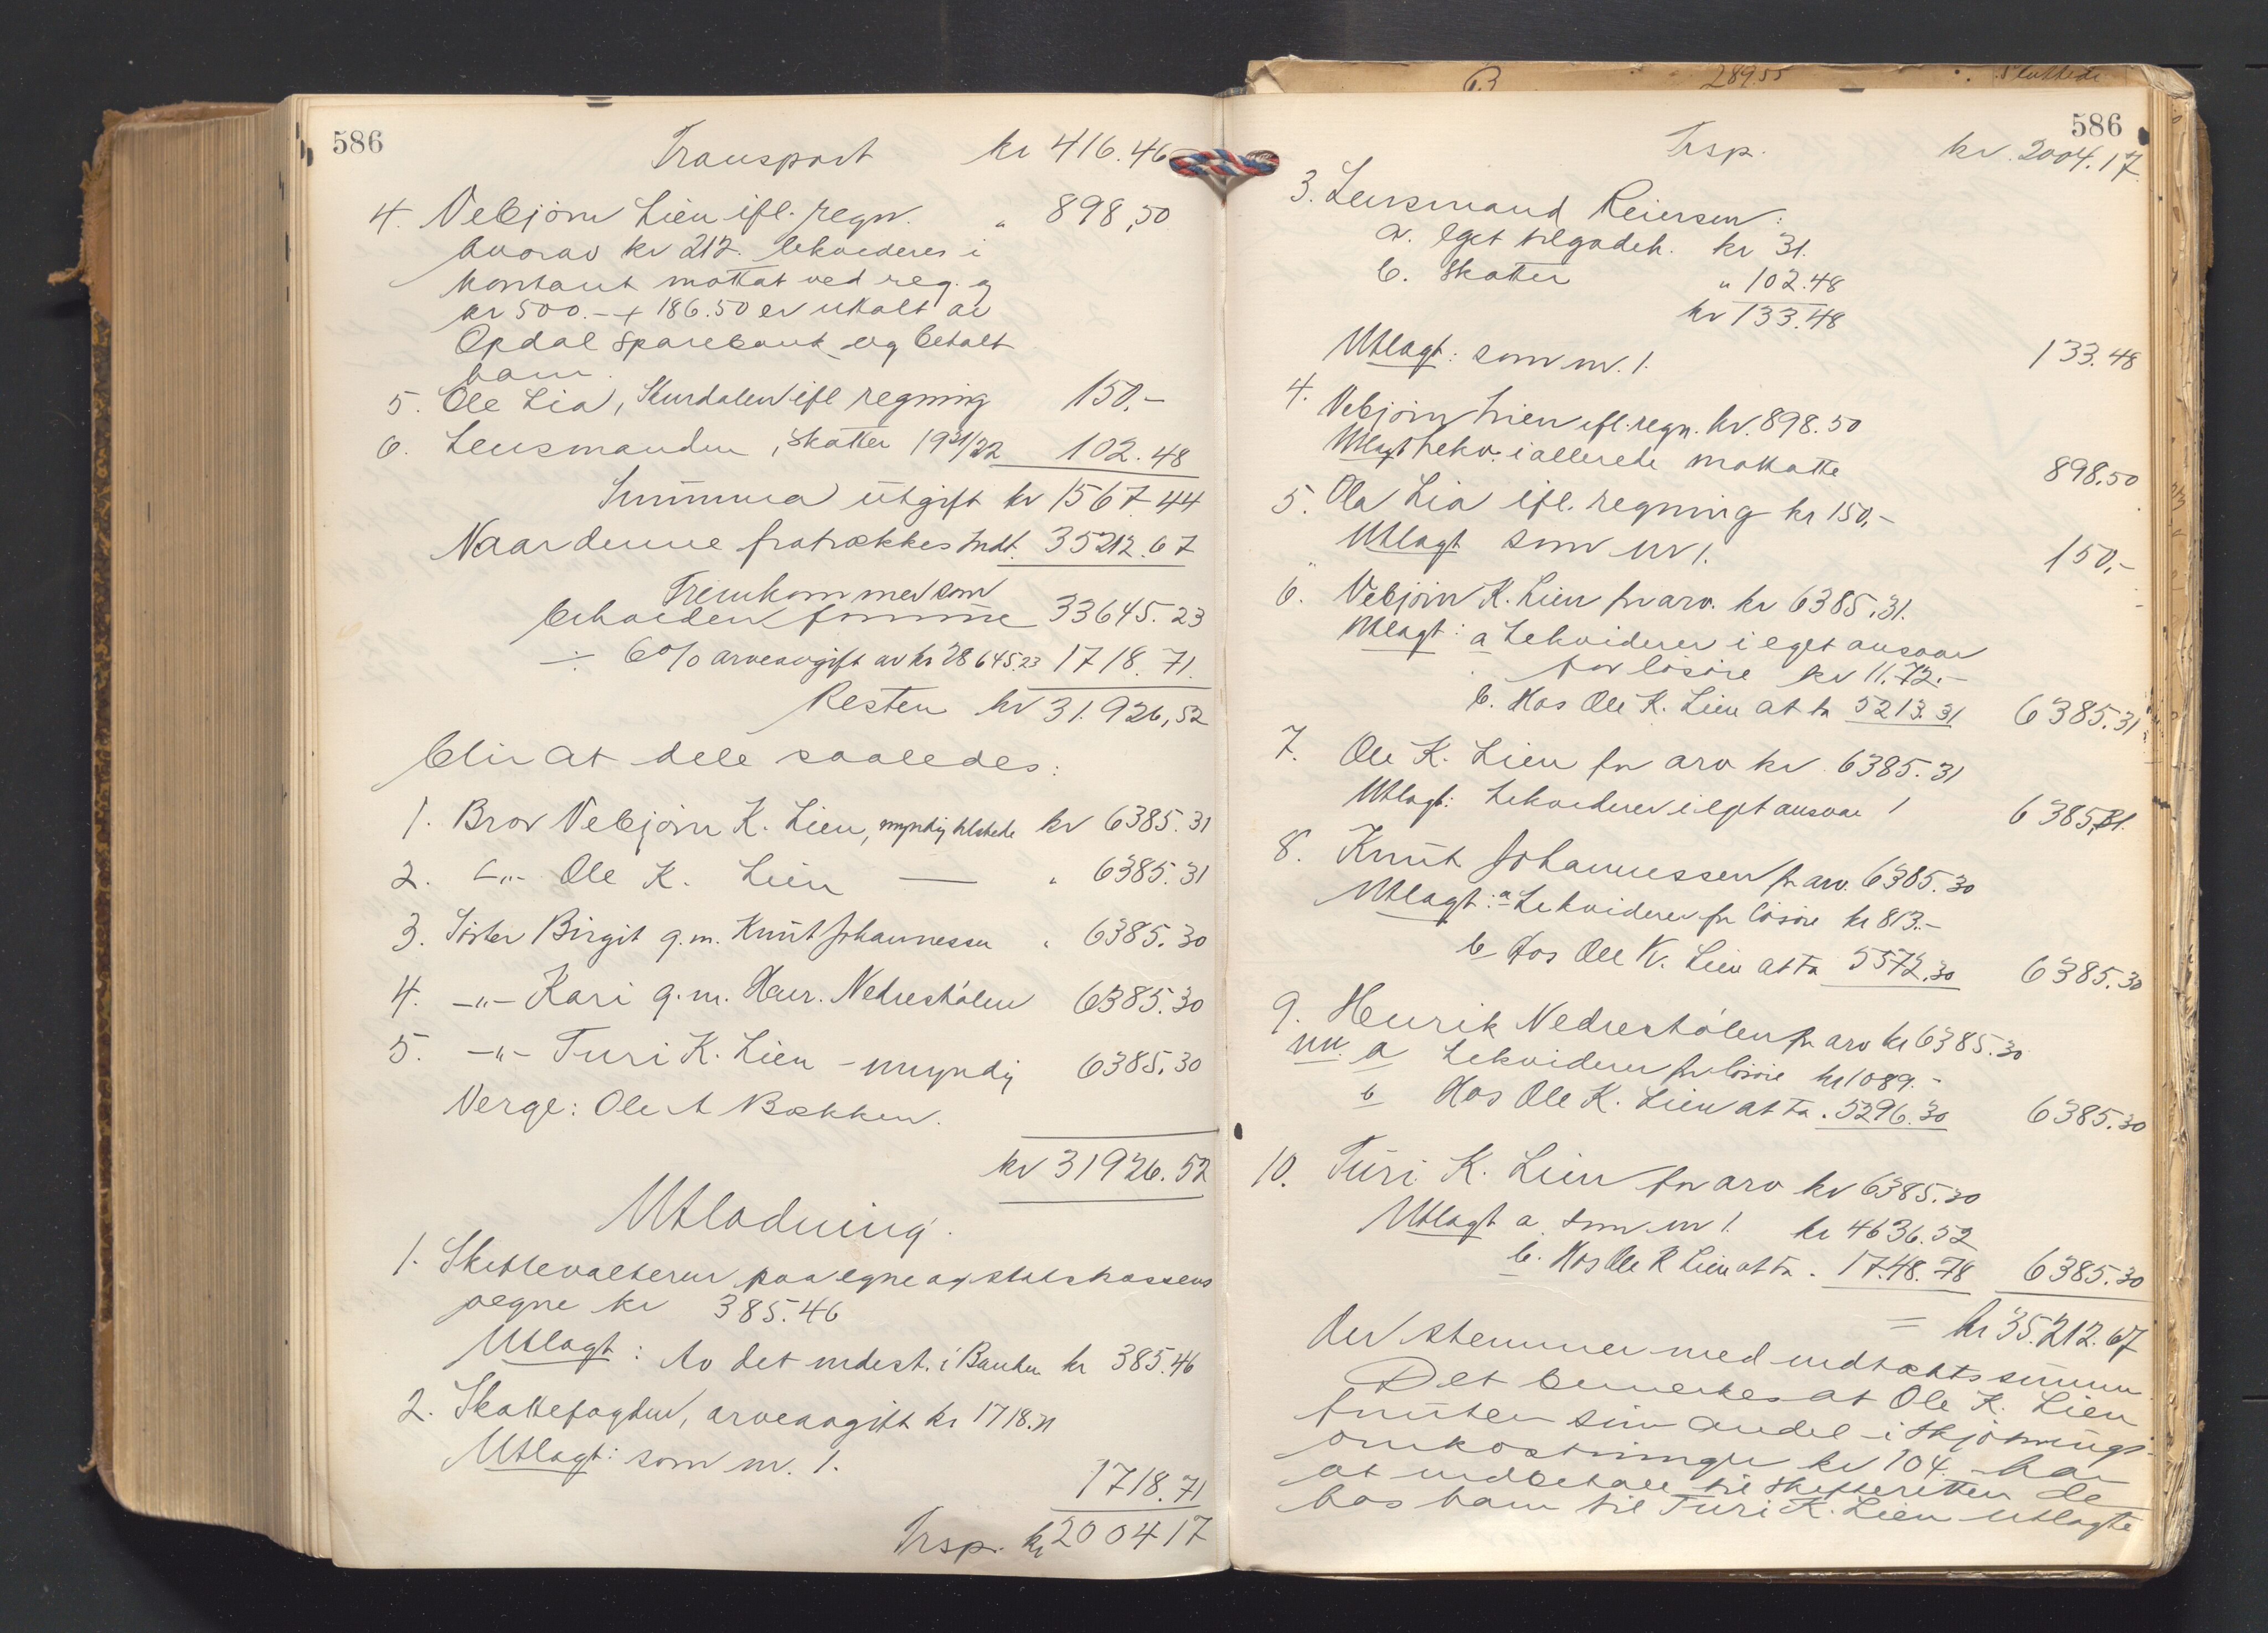 586
Transport kr 416.46
4. Vebjörn Lien ifl. regn. " 898,50
hvorav kr 212. lekvideres i
kontant mottat ved reg. og
kr 500.- + 186.50 er uttalt av
Opdal Sparebank og betalt
ham.
5. Ole Lia, Skurdalen ifl regning 150.-
6. Lensmanden, skatter 1921/22 102.48
Summa utgift kr 1567.44
Naar denne fratrækkes Indt. 35212.67
Fremkommer som
behoeden summe 33645.23
÷ 6% arveavgift av kr 28645.23 1718.71.
Resten kr 31.926,52
blir at dele saaledes:
1. Bror Vebjörn K. Lien, myndig tilstede kr 6385.31
2. -„- Ole K. Lien — " 6385.31
3. Söster Birgit g.m. Knut Johannessen " 6385.30
4. -„- Kari g.m. Henr. Nedrestölen 6385.30
5. -„- Turi K. Lien - umyndig 6385.30
Verge: Ole A Bækken.
kr 31926.52
Utlodning.
1. Skifteforvalteren paa egne og statskassens
vegne kr 385.46
Utlagt: Av det indest. i Banken kr 385.46
2. Skattefogden, arveavgift kr 1718.71
Utlagt: som nr. 1.
1718.71
Trsp. kr 2004 17
63 289.55 Sluttede
586
Trsp. kr. 2004.17
3. Lensmand Reiersen:
a. eget tilgodeh. kr 31.
b. Skatter " 102.48
kr 133.48
Utlagt: som nr. 1. 133.48
4. Vebjörn Lien ifl. regn. kr. 898.50
Utlagt lekv. i allerede mottatte 898.50
5. Ola Lia ifl. regning kr 150,-
Utlagt som nr 1. 150,-
6. Vebjörn K. Lien for arv. kr 6385.31.
Utlagt: a Lekviderer i eget ansvar
for lösöre kr 11.72.-
b. Hos Ole K. Lien at ta 5213.31 6385.31
7. Ole K. Lien for arv kr. 6385.31
Utlagt: Lekviderer i eget ansvar 6385,31.
8. Knut Johannessen for arv. 6385.30
Utlagt: a Lekviderer for lösöre kr 813.-
b Hos Ole K. Lien at ta 5572.30 6385.30
9. Henrik Nedrestölen for arv kr 6385.30
Utl. a Lekviderer for lösöre kr 1089.-
b Hos Ole K. Lien at ta. 5296.30 6385.30
10. Turi K. Lien for arv kr 6385.30
Utlagt a. som nr 1. kr 4636.52
b. Hos Ole K Lien at ta. 1748.78 6385.30
= kr 35.212.67
der stemmer med indtæktssummen.
Det bemerkes at Ole K. Lien
foruten sin andel i skjötnings-
omkostninger kr 104.- har
at indbetale til skifteretten de
hos ham til Turi K. Lien utlagte